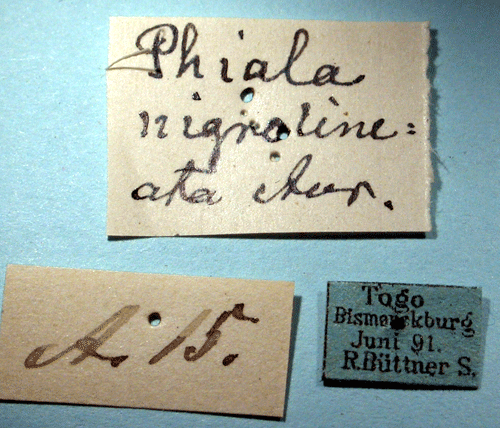 Phiala
nigroline=
ata Aur.
A. 15.
Togo
Bismarckburg
Juni 91.
R.Büttner S.